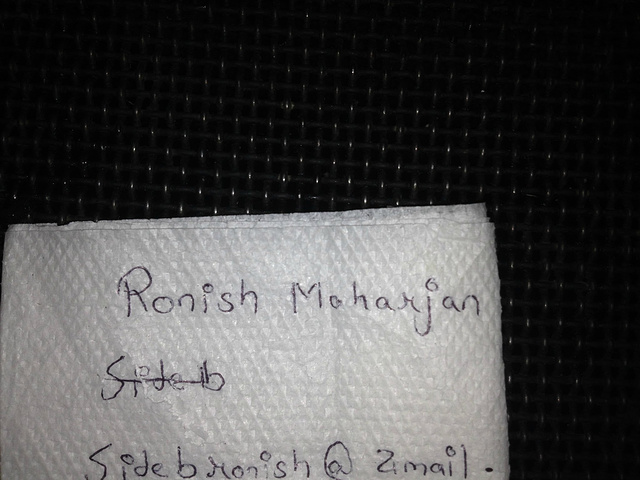 Ronish Maharjan
Sideb
Sidebronish@gmail.